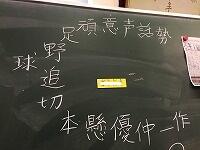 足頑意声話勢
野追切
球
本懸優仲一作